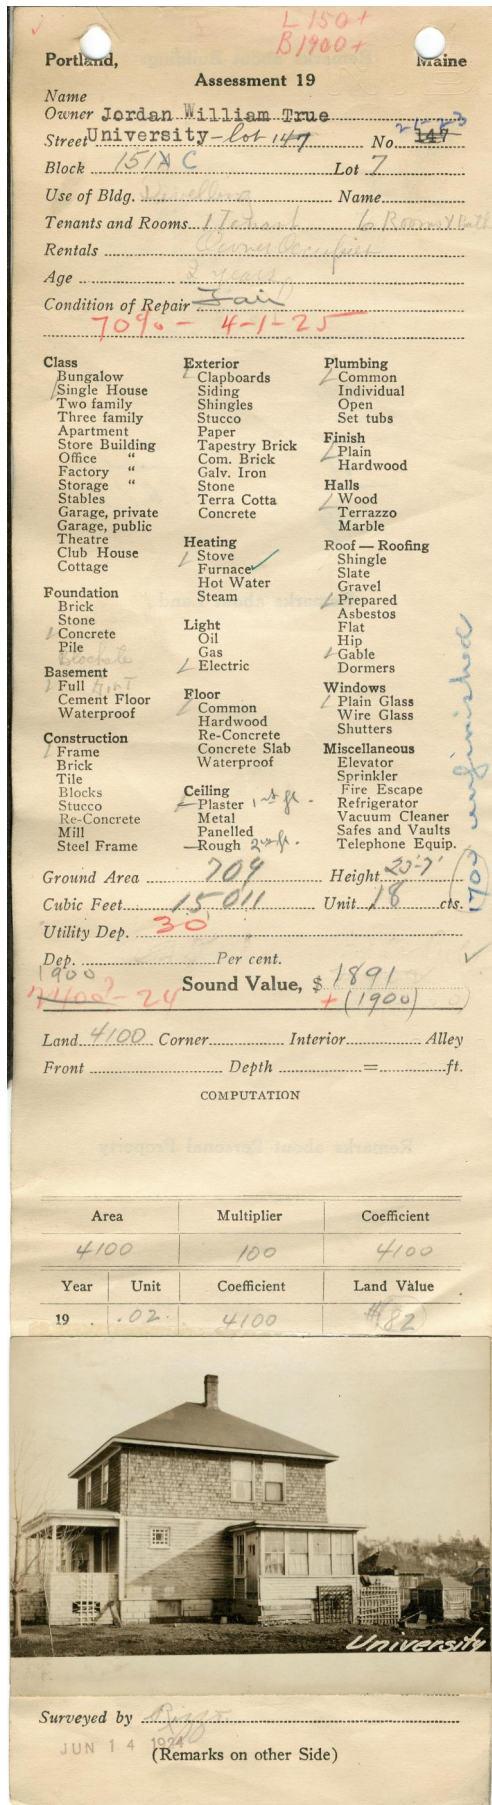 L 150+
B 1900+
Portland, Maine
Assessment 19
Name
Owner Jordan William True
Street University - lot 147 No. 147 21-23
Block 151 A C Lot 7
Use of Bldg. Dwelling Name
Tenants and Rooms 1 Tenant 6 Rooms & Bath
Rentals Owner Occupies
Age 2 years
Condition of Repair Fair
70% - 4-1-25
Class
Bungalow
Single House
Two family
Three family
Apartment
Store Building
Office "
Factory "
Storage "
Stables
Garage, private
Garage, public
Theatre
Club House
Cottage
Foundation
Brick
Stone
Concrete
Pile
Basement
Full
Cement Floor
Waterproof
Construction
Frame
Brick
Tile
Blocks
Stucco
Re-Concrete
Mill
Steel Frame
Exterior
Clapboards
Siding
Shingles
Stucco
Paper
Tapestry Brick
Com. Brick
Galv. Iron
Stone
Terra Cotta
Concrete
Heating
Stove
Furnace
Hot Water
Steam
Light
Oil
Gas
Electric
Floor
Common
Hardwood
Re-Concrete
Concrete Slab
Waterproof
Ceiling
Plaster 1st fl.
Metal
Panelled
Rough 2nd fl.
Plumbing
Common
Individual
Open
Set tubs
Finish
Plain
Hardwood
Halls
Wood
Terrazzo
Marble
Roof — Roofing
Shingle
Slate
Gravel
Prepared
Asbestos
Flat
Hip
Gable
Dormers
Windows
Plain Glass
Wire Glass
Shutters
Miscellaneous
Elevator
Sprinkler
Fire Escape
Refrigerator
Vacuum Cleaner
Safes and Vaults
Telephone Equip.
unfinished
Ground Area 709 Height
Cubic Feet 15011 Unit 18 cts.
Utility Dep. 30
Dep. Per cent.
1900
Sound Value, $ 1891
+ (1900)
Land 4100 Corner Interior Alley
Front Depth = ft.
COMPUTATION
Area Multiplier Coefficient
4100 100 4100
Year Unit Coefficient Land Value
19 .02 4100 $82
University
Surveyed by
JUN 14 1924
(Remarks on other Side)